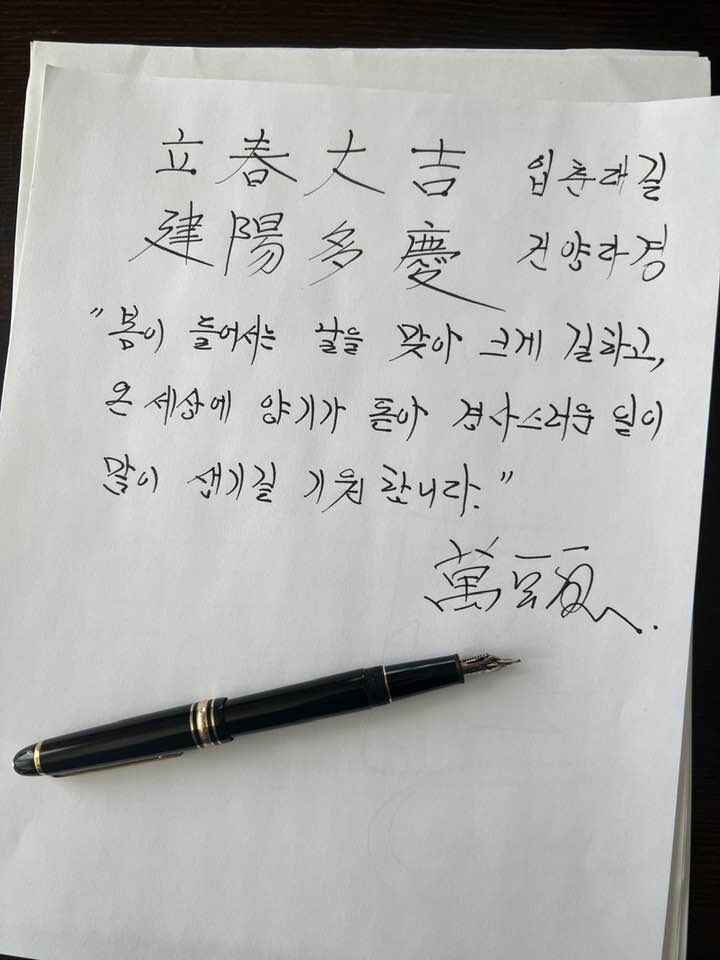 立春大吉 입춘대길
建陽多慶 건양다경
"봄이 들어서는 날을 맞아 크게 길하고,
온 세상에 양기가 돋아 경사스러운 일이
많이 생기길 기원합니다."
萬頭